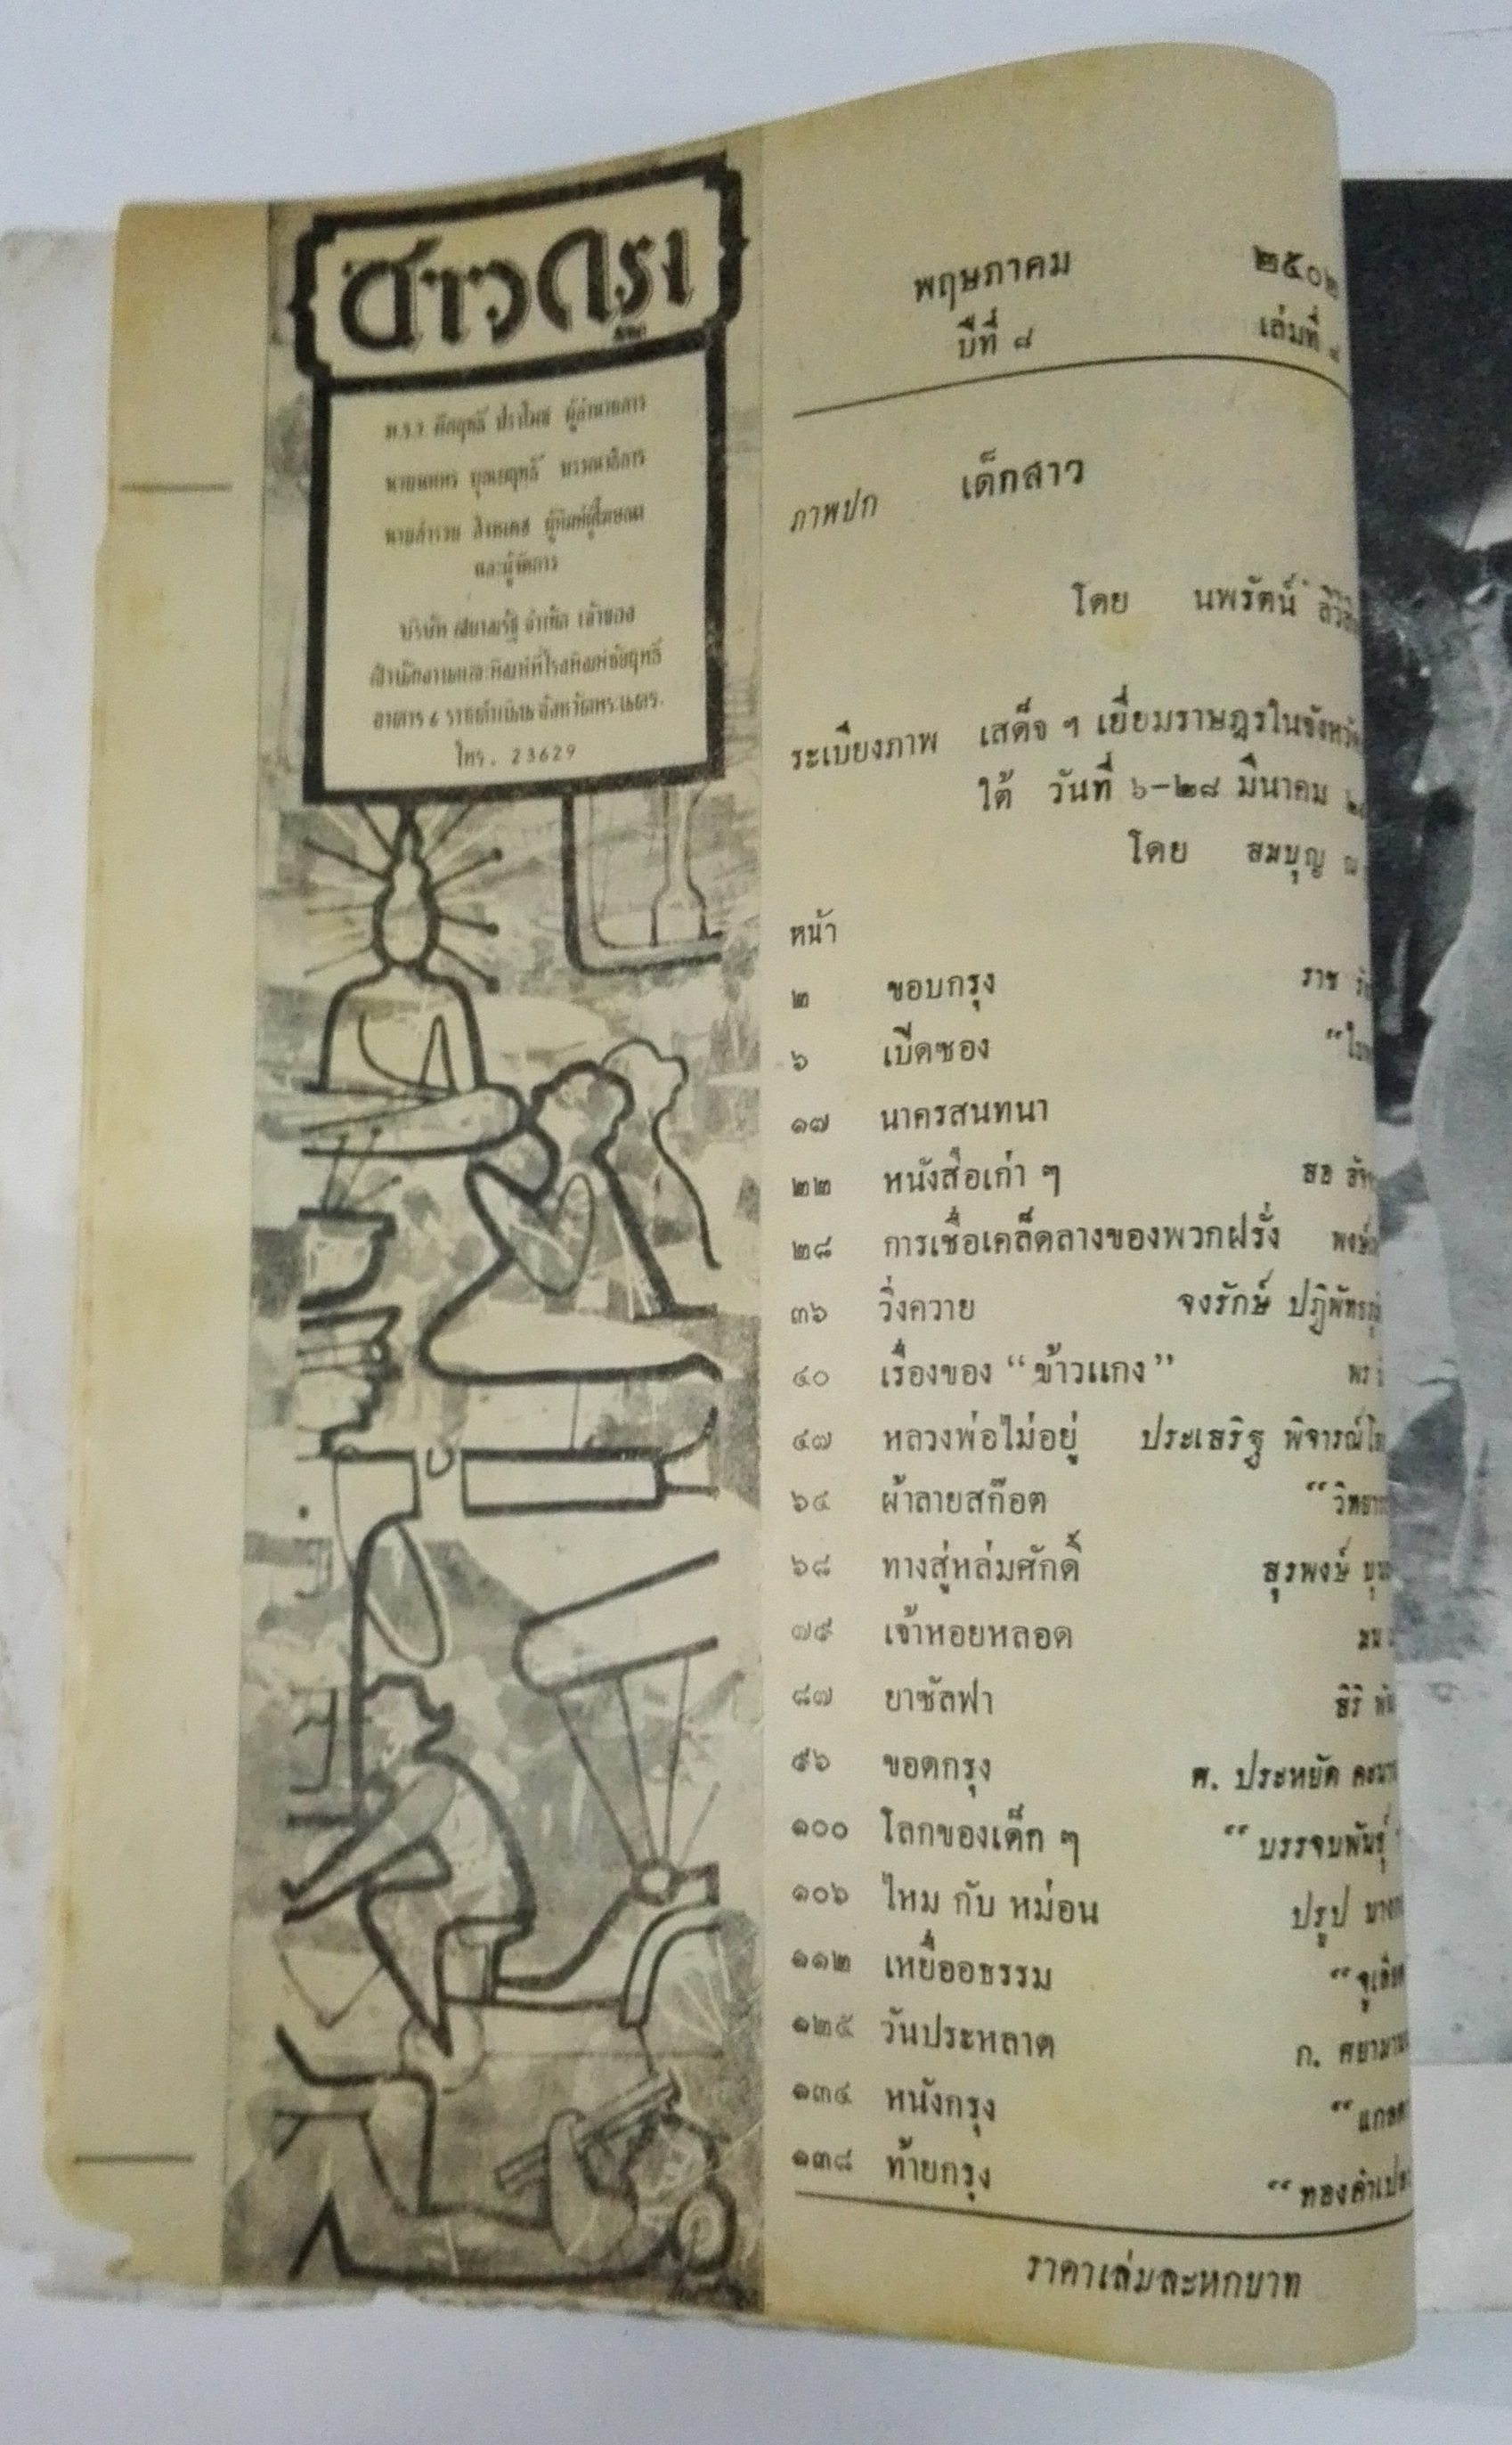 ชาวกรุง
ม.ร.ว. คึกฤทธิ์ ปราโมช ผู้อำนวยการ
นายนพพร บุณยฤทธิ์ บรรณาธิการ
นายสำรวย สิงหเดช ผู้พิมพ์ผู้โฆษณา
และผู้จัดการ
บริษัท สยามรัฐ จำกัด เจ้าของ
สำนักงานและพิมพ์ที่โรงพิมพ์ชัยฤทธิ์
อาคาร ๖ ราชดำเนิน จังหวัดพระนคร.
โทร. 23629
พฤษภาคม ๒๕๐๒
ปีที่ ๘ เล่มที่
ภาพปก เด็กสาว
โดย นพรัตน์
ระเบียงภาพ เสด็จ ฯ เยี่ยมราษฎรในจังหวัด
ใต้ วันที่ ๖-๒๘ มีนาคม
โดย สมบุญ ณ
หน้า
๒ ขอบกรุง ราช
๖ เปิดซอง
๑๗ นาครสนทนา
๒๒ หนังสือเก่า ๆ สอ
๒๘ การเชื่อเคล็ดลางของพวกฝรั่ง
๓๖ วิ่งควาย จงรักษ์
๔๐ เรื่องของ “ข้าวแกง” พร
๔๗ หลวงพ่อไม่อยู่ ประเสริฐ
๖๔ ผ้าลายสก๊อต
๖๘ ทางสู่หล่มศักดิ์ สุรพงษ์
๗๙ เจ้าหอยหลอด
๘๗ ยาซัลฟา สิริ
๙๖ ขอดกรุง ศ. ประหยัด
๑๐๐ โลกของเด็ก ๆ “บรรจบพันธุ์
๑๐๖ ไหม กับ หม่อน ปรูป
๑๑๒ เหยื่ออธรรม
๑๒๕ วันประหลาด ก.
๑๓๔ หนังกรุง
๑๓๘ ท้ายกรุง
ราคาเล่มละหกบาท